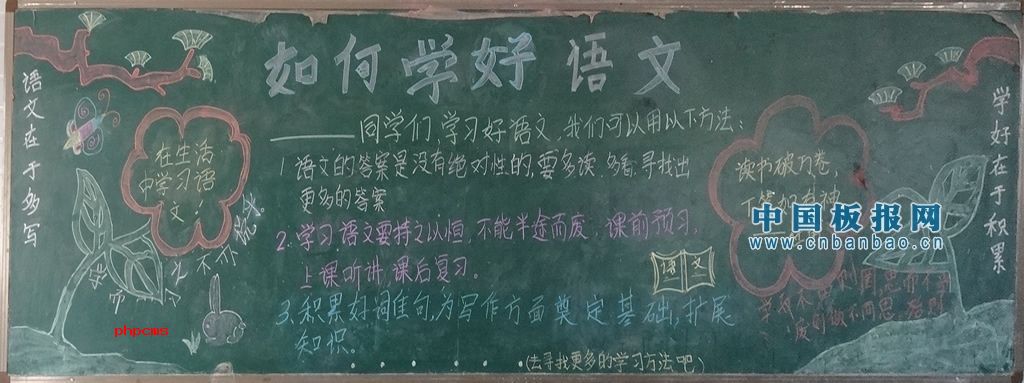 如何学好语文
语文在于多写
在生活
中学习语
文！
同学们，学习好语文，我们可以用以下方法：
1.语文的答案是没有绝对性的，要多读、多看、寻找出
更多的答案
2.学习语文要持之以恒，不能半途而废，课前预习，
上课听讲，课后复习。
3.积累好词佳句，为写作方面奠定基础，扩展
知识。
......
（去寻找更多的学习方法吧）
语文
读书破万卷，
下
神
学好在于积累
中国板报网
www.cnbanbao.cn
学而不思则罔，思而不学
则
phpcms